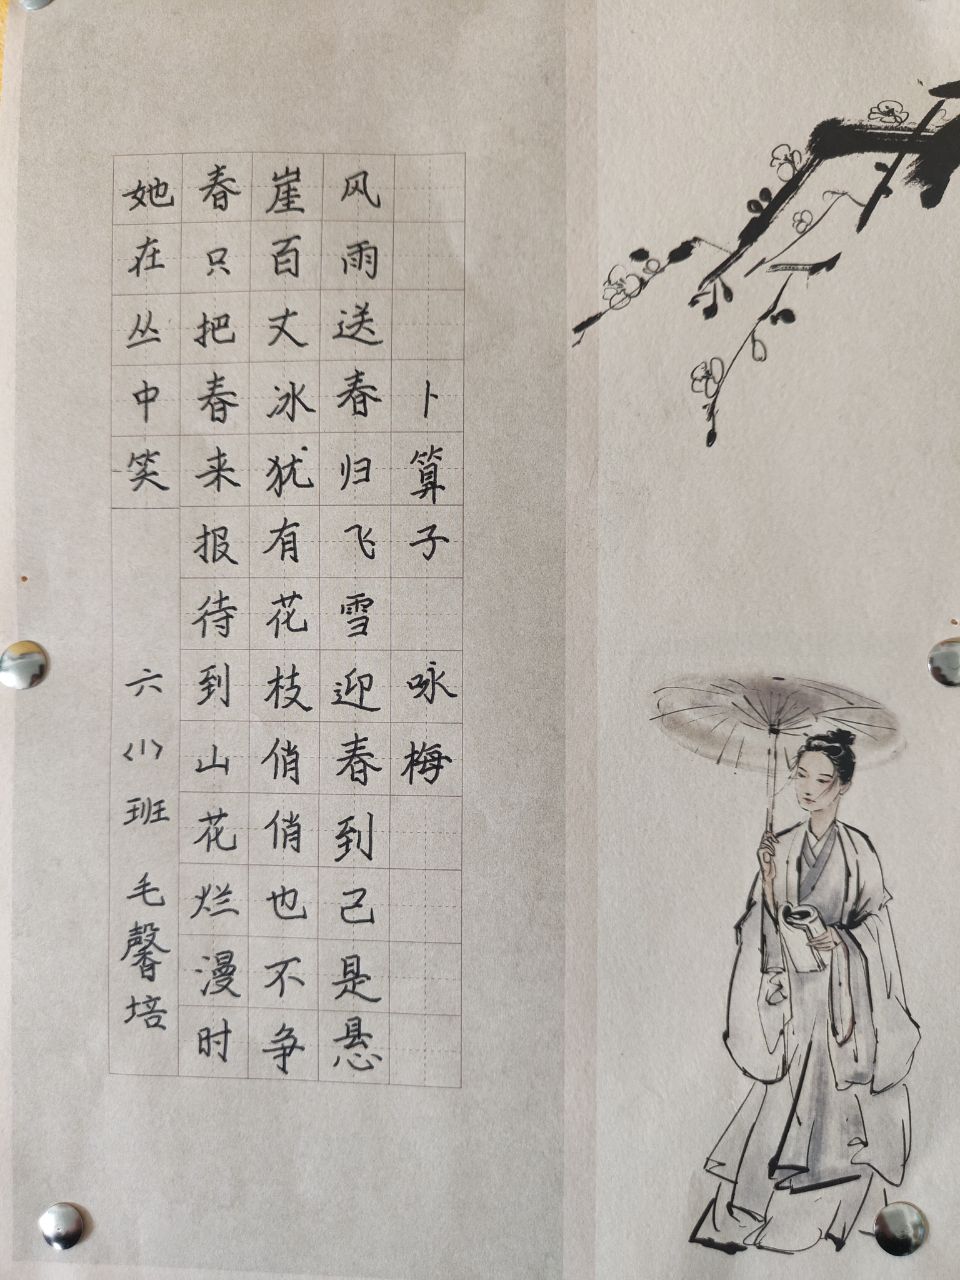 卜算子 咏梅
风雨送春归飞雪迎春到己是悬
崖百丈冰犹有花枝俏俏也不争
春只把春来报待到山花烂漫时
她在丛中笑 六(1)班 毛馨培